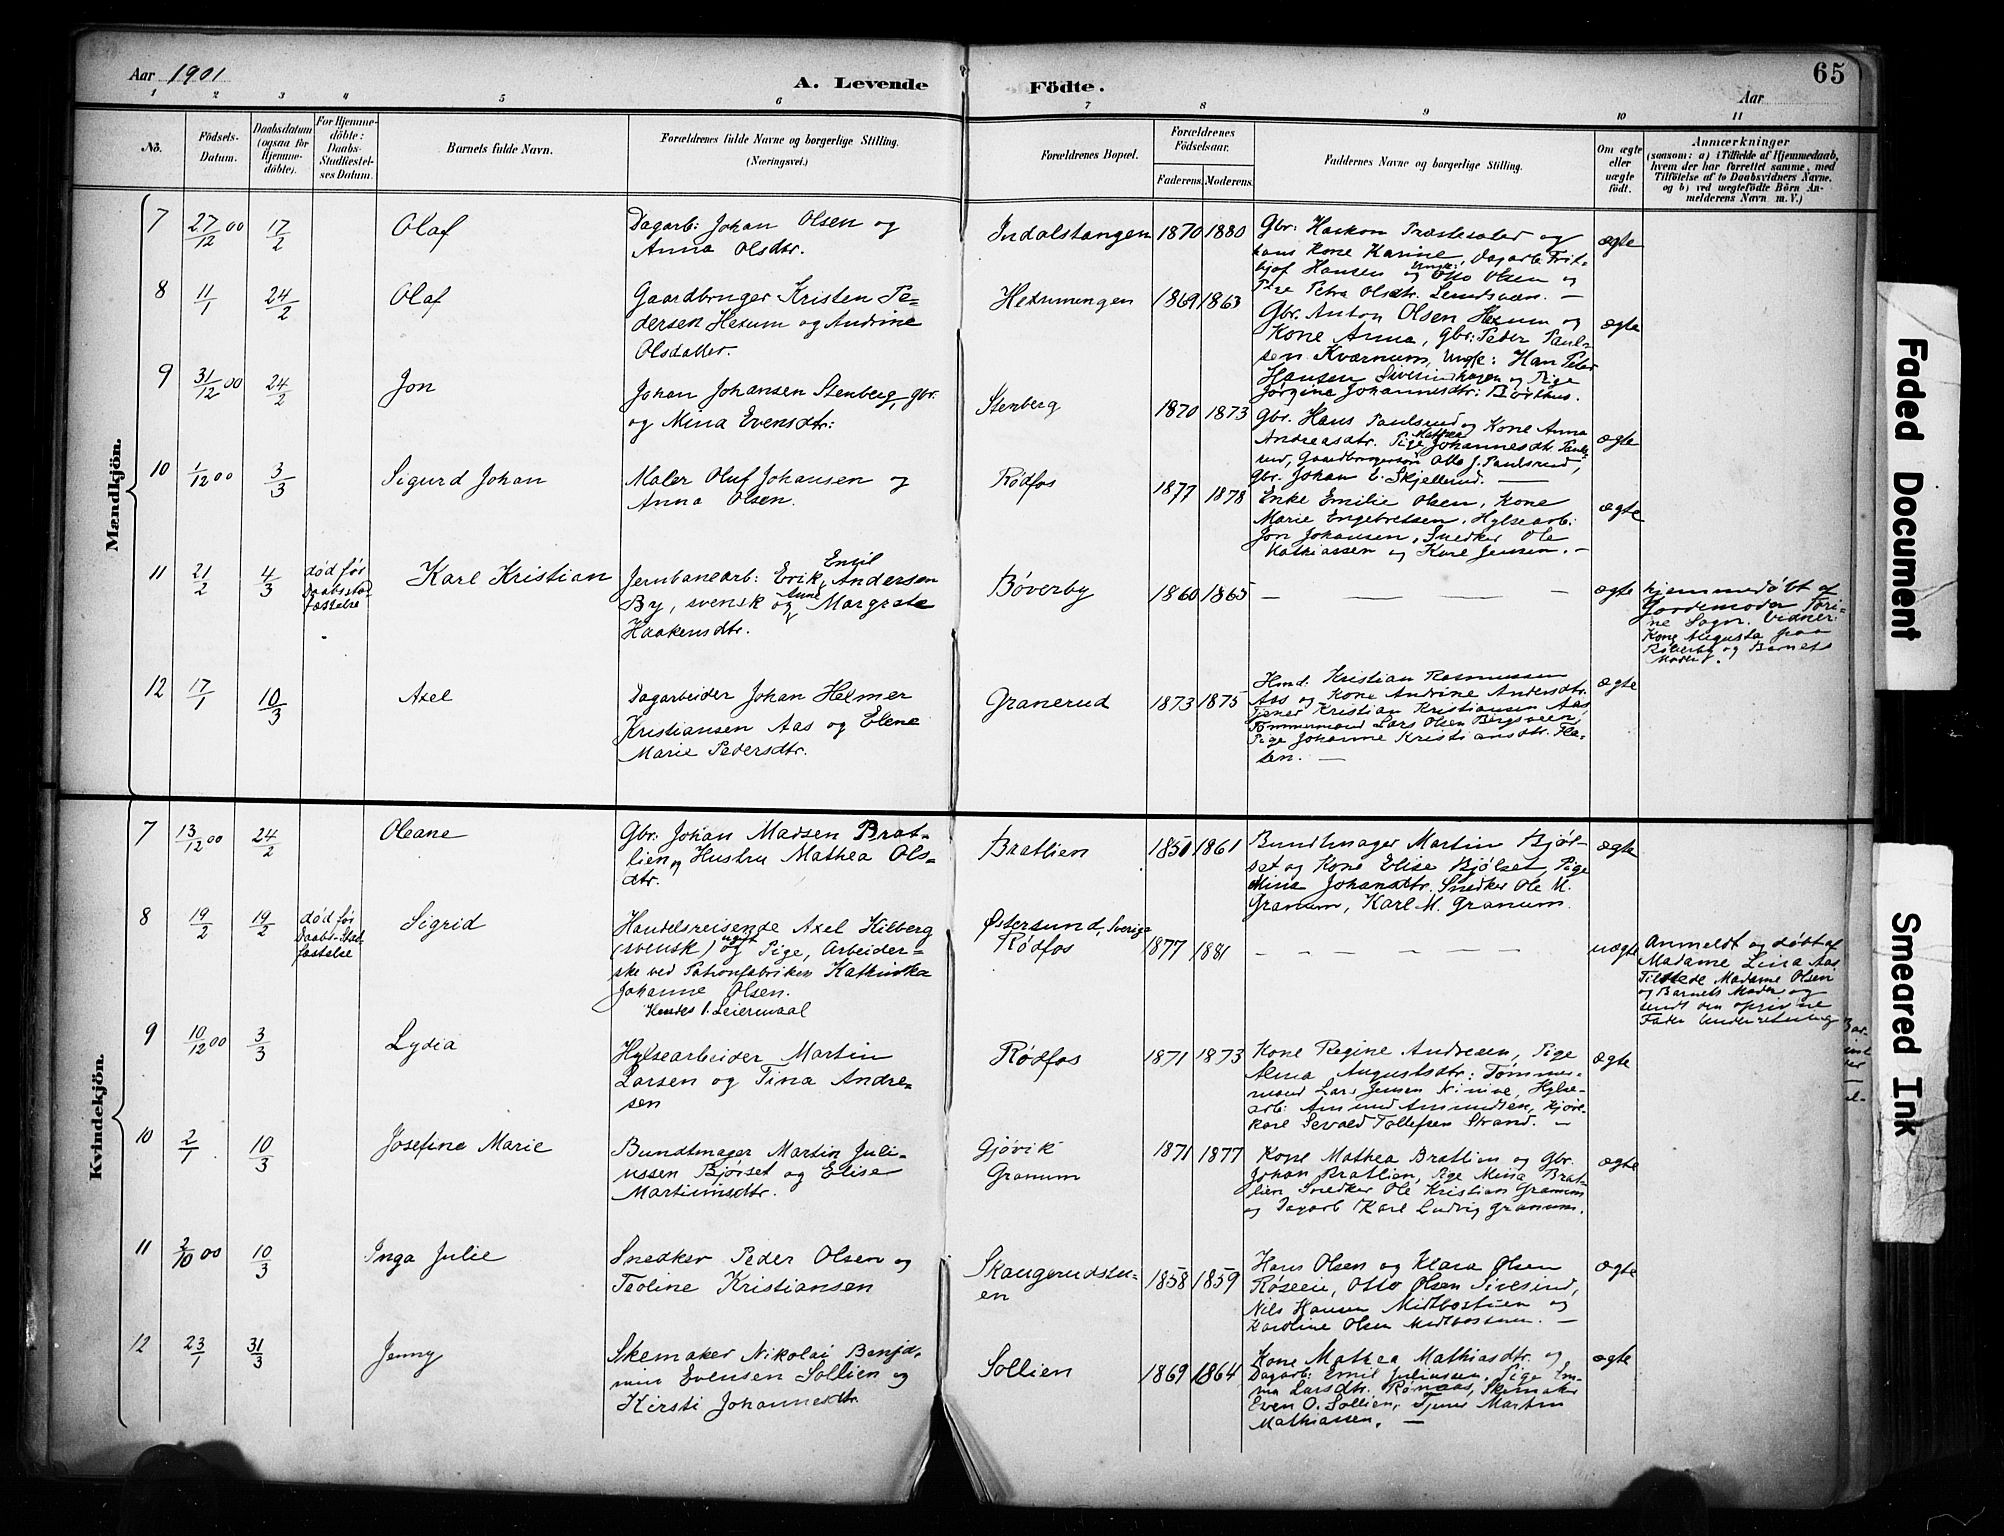 Aar 1901
A. Levende
Födte.
65
Aar
1 2 3 4 5 6 7 8 9 10 11
No.
Födsels-
Datum.
Daabsdatum
(ogsaa for
Hjemme-
döbte).
For Hjemme-
döbte:
Daabs-
Stadfæstel-
ses Datum.
Barnets fulde Navn.
Forældrenes fulde Navne og borgerlige Stilling.
(Næringsvei.)
Forældrenes Bopæl.
Forældrenes
Födselsaar.
Faderens. Moderens.
Faddernes Navne og borgerlige Stilling.
Om ægte
eller
uægte
födt.
Anmærkninger
(saasom: a) i Tilfælde af Hjemmedaab,
hvem der har forrettet samme, med
Tilföielse af to Daabsvidners Navne.
og b) ved uægtefödte Börn An-
melderens Navn m. V.)
Mændkjön.
7 27/12 00 17/2 Olaf
Dagarb: Johan Olsen og
Anna Olsdtr.
Indalstangen 1870 1880
Gbr: Haakon Præstesæter og
hans Kone Karine, Dagarb. Frit-
hjof Hansen og Ungk: Otto Olsen og
Pige Petra Olsdtr. Lundsvæen. —
ægte
8 11/1 24/2 Olaf
Gaardbruger Kristen Pe-
dersen Hexum og Andrine
Olsdatter.
Hexumengen 1869 1863
Gbr. Anton Olsen Hexum og
Kone Anna, Gbr: Peder Paul-
sen Kværnum, Ungk: Han Peter
Hansen Sivesindhagen og Pige
Jørgine Johannesdtr: Børthus.
ægte
9 31/12 00 24/2 Jon
Johan Johansen Stenberg, gbr.
og Mina Evensdtr:
Stenberg 1870 1873
Gbr. Hans Paulsrud og Kone Anna
Andreasdtr. Pige Mathea Johannesdtr. Pauls-
rud, Gaardbrugersøn Otto J. Paulsrud,
Gbr. Johan E. Skjellerud. —
ægte
10 1/12 00 3/3 Sigurd Johan
Maler Oluf Johansen og
Anna Olsen.
Rødfos 1877 1878
Enke Emilie Olsen, Kone
Marie Engebretsen, Hylsearb:
Jon Johansen, Snedker Ole
Mathiassen og Karl Jensen. —
ægte
11 21/2 4/3 død før
Daabsstad-
fæstelse
Karl Kristian
Jernbanearb: Erik Emil Andersen
By, svensk og Anne Margrete
Haakensdtr.
Bøverby 1860 1865
— — — — —
ægte
hjemmedøbt af
Jordemoder Tori-
ne Sogn. Vidner:
Kone Augusta paa
Bøverby og Barnets
Moder.
12 17/1 10/3 Axel
Dagarbeider Johan Helmer
Kristiansen Aas og Elene
Marie Pedersdtr.
Granerud 1873 1875
Hmd. Kristian Rasmussen
Aas og Kone Andrine Andersdtr.
Tjener Kristian Kristiansen Aas,
Tømmermand Lars Olsen Bergsveen,
Pige Johanne Kristiansdtr. Fla-
ten. —
ægte
Kvindekjön.
7 13/12 00 24/2 Oleane
Gbr: Johan Madsen Brat-
lien og Hustru Mathea Ols-
dtr.
Bratlien 1851 1861
Bundtmager Martin Bjøl-
set og Kone Elise Bjølset, Pige
Mina Johansdtr. Snedker Ole M.
Granum, Karl M. Granum.
ægte
8 19/2 19/2 død før
Daabs-Stad
fæstelse
Sigrid
Handelsreisende Axel Kilberg
(svensk) og ugift Pige, Arbeider-
ske ved Patronfabriken Kathinka
Johanne Olsen.
Kendes 1. Leiermaal
Østersund, Sverige
Rødfos 1877 1881
— — — — —
uægte
Anmeldt og døbt af
Madame Lina Aas
Tilstede Madame Olsen
og Barnets Moder og
sendt den opgivne
Fader Underretning
9 10/12 00 3/3 Lydia
Hylsearbeider Martin
Larsen og Tina Andre-
sen
Rødfos 1871 1873
Kone Regine Andresen, Pige
Alma Augustsdtr: Tømmer-
mand Lars Jensen Ninive, Hylse-
arb: Amund Amundsen, Kjøre-
karl Sevald Tollefsen Strand. —
ægte
10 2/1 10/3 Josefine Marie
Bundtmager Martin Juli-
ussen Bjølset og Elise
Martinusdtr.
Gjøvik
Granum 1871 1877
Kone Mathea Bratlien og Gbr.
Johan Bratlien, Pige Mina Brat-
lien Snedker Ole Kristian Granum
og Dagarb Karl Ludvig Granum.
ægte
11 2/10 00 10/3 Inga Julie
Snedker Peder Olsen og
Teoline Kristiansen
Skaugerudstu-
en 1858 1859
Hans Olsen og Klara Olsen
Røseeie, Otto Olsen Sivesind,
Nils Hansen Midtbøstuen og
Karoline Olsen Midtbøstuen. —
ægte
12 23/1 31/3 Jenny
Skemaker Nikolai Benja-
min Evensen Sollien og
Kirsti Johannesdtr.
Sollien 1869 1864
Kone Mathea Mathiasdtr. og
Dagarb: Emil Juliussen, Pige Em-
ma Larsdtr. Rønaas, Skemaker
Even O. Sollien, Tjener Martin
Mathiassen. —
ægte
Faded Document
Smeared Ink